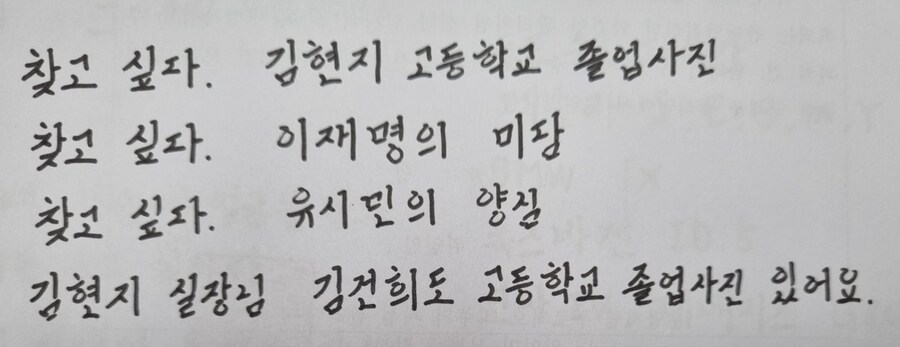 찾고 싶다. 김현지 고등학교 졸업사진
찾고 싶다. 이재명의 미담
찾고 싶다. 유시민의 양심
김현지 실장님 김건희도 고등학교 졸업사진 있어요.